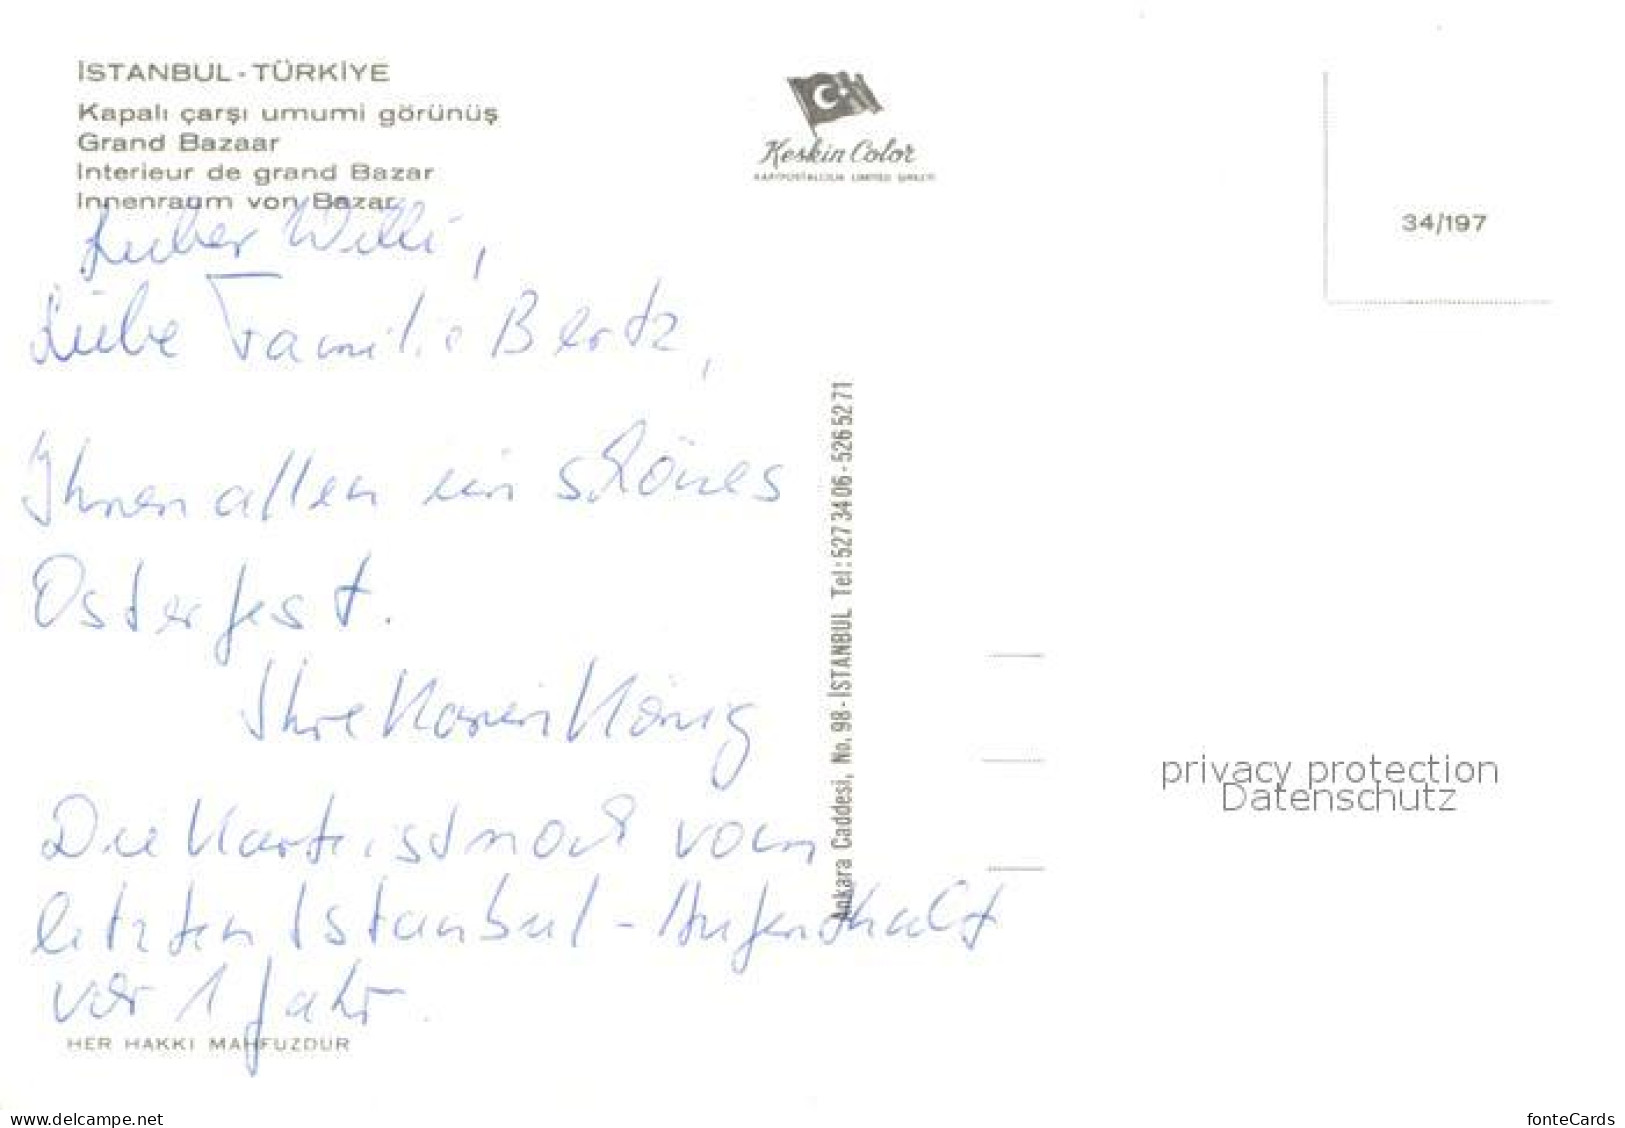 İSTANBUL - TÜRKİYE
Kapalı çarşı umumi görünüş
Grand Bazaar
Interieur de grand Bazar
Innenraum von Bazar
Keskin Color
KARTPOSTALCILIK LIMITED ŞIRKETI
34/197
Lieber Willi,
Liebe Familie Bertz,
Ihnen allen ein schönes
Osterfest.
Ihre Karin König
Die Karte ist noch vom
letzten Istanbul-Aufenthalt
vor 1 Jahr.
HER HAKKI MAHFUZDUR
Ankara Caddesi, No. 98 - İSTANBUL Tel: 527 34 06 - 526 52 71
privacy protection
Datenschutz
www.delcampe.net
fonteCards